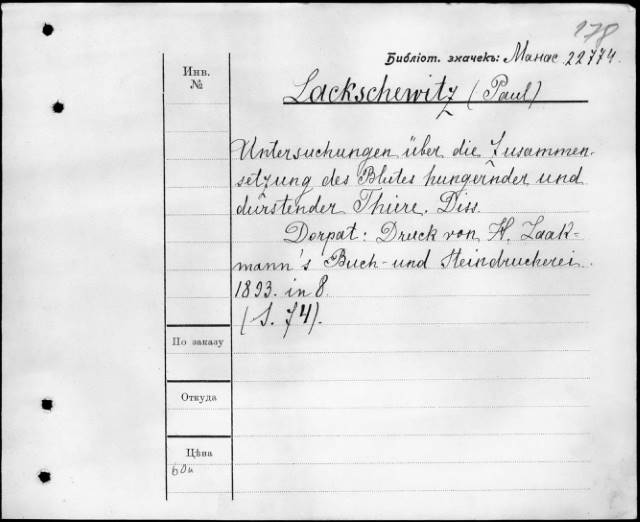 178
Библіот. значекъ: Манас 22774.
Инв.
№
Lackschewitz (Paul)
Untersuchungen über die Zusammen-
setzung des Blutes hungernder und
dürstender Thiere. Diss.
Dorpat: Druck von H. Laak-
mann's Buch- und Steindruckerei.
1893. in 8.
(S. 74).
По заказу
Откуда
Цѣна